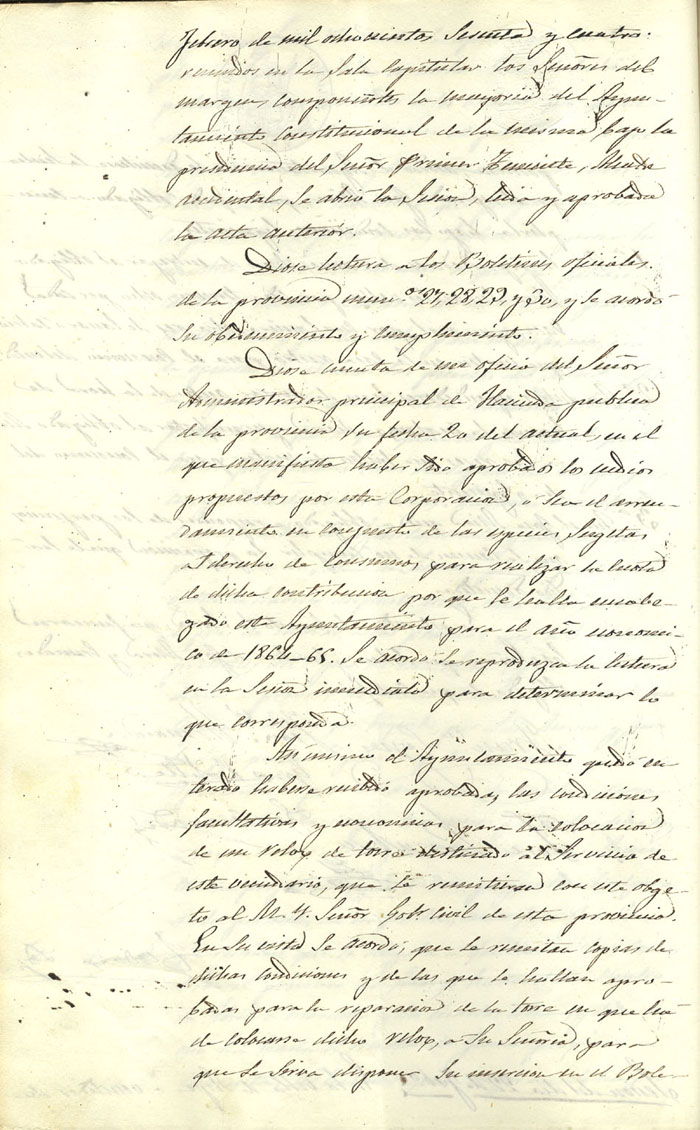 febrero de mil ochocientos sesenta y cuatro:
reunidos en la Sala Capitular los Señores del
margen componentes la mayoria del Ayun-
tamiento Constitucional de la misma bajo la
presidencia del Señor primer Teniente, Alcalde
accidental, se abrió la Sesion, leida y aprobada
la acta anterior.
Diose lectura a los Boletines oficiales
de la provincia num.os 27, 28, 29, y 30, y se acordó
su obedecimiento y cumplimiento.
Diose cuenta de un oficio del Señor
Administrador principal de Hacienda publica
de la provincia su fecha 20 del actual, en el
que manifiesta haber sido aprobados los medios
propuestos por esta Corporacion, o sea el arren-
damiento en conjunto de las especies sugetas
al derecho de consumos para realizar la cuota
de dicha contribucion por que se halla encabe-
zado este Ayuntamiento para el año economi-
co de 1864-65. Se acordó se reproduzca la lectura
en la Sesion inmediata para determinar lo
que corresponda.
Asi mismo el Ayuntamiento quedó en-
terado haberse recibido aprobadas las condiciones
facultativas y economicas para la colocacion
de un relox de torre destinado al Servicio de
este vecindario, que se remitieron con este obge-
to al M. Y. Señor Gob.r Civil de esta provincia.
En su vista se acordó; que se remitan copias de
dichas condiciones y de las que se hallan apro-
badas para la reparacion de la torre en que ha
de colocarse dicho relox, a Su Señoria, para
que se sirva disponer su insercion en el Bole-